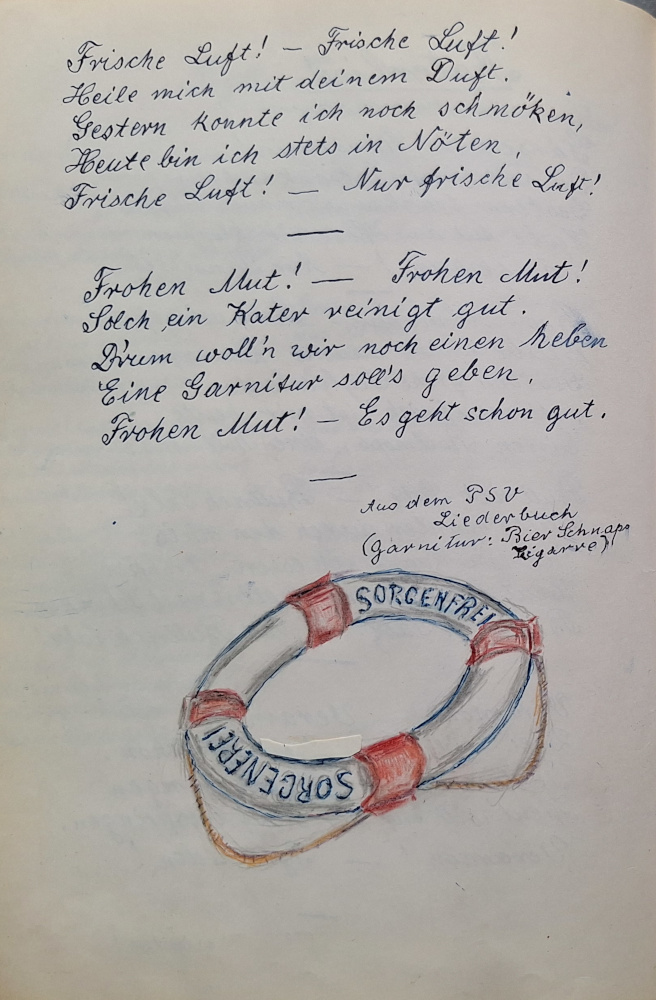 Frische Luft! — Frische Luft!
Heile mich mit deinem Duft.
Gestern konnte ich noch schmöken,
Heute bin ich stets in Nöten,
Frische Luft! — Nur frische Luft!
Frohen Mut! — Frohen Mut!
Solch ein Kater reinigt gut.
D'rum woll'n wir noch einen heben
Eine Garnitur soll's geben,
Frohen Mut! — Es geht schon gut.
Aus dem PSV
Liederbuch
(Garnitur: Bier Schnaps
Zigarre)
SORGENFREI
SORGENFREI